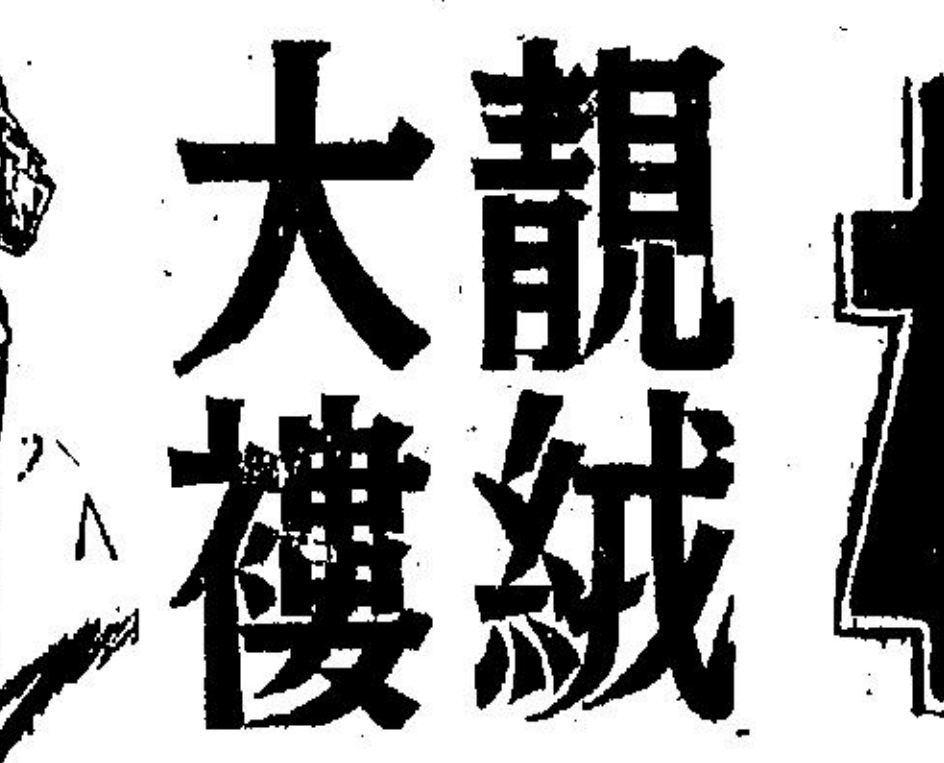 靚絨
大褸